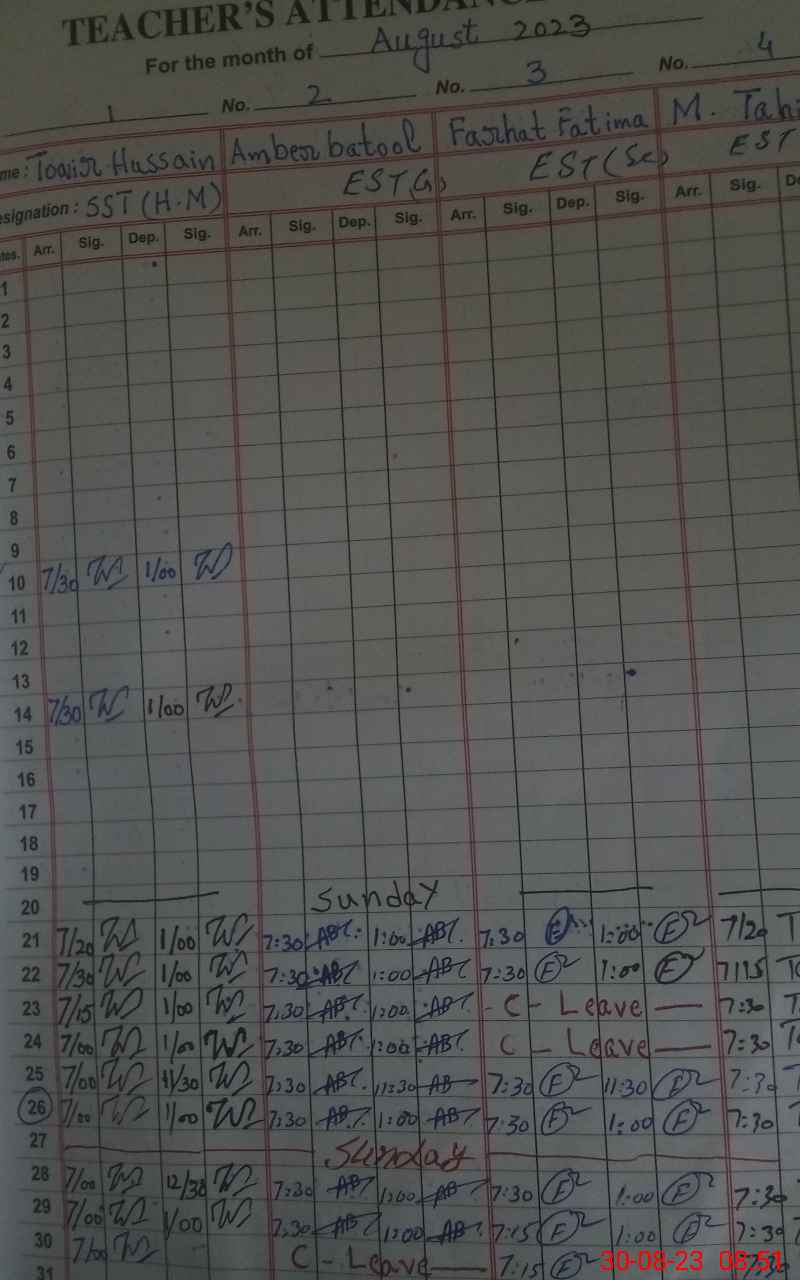 TEACHER'S ATTENDANC
For the month of August 2023
1 No. 2 No. 3 No. 4
me: Hussain Amber batool Farhat Fatima M. Tahi
esignation: SST (H.M) EST (Sc) EST
tes. Arr. Sig. Dep. Sig. Arr. Sig. Dep. Sig. Arr. Sig. Dep. Sig. Arr. Sig. De
1
2
3
4
5
6
7
8
9
10 7/30 1/00
11
12
13
14 7/30 1/00
15
16
17
18
19
20 Sunday
21 7/20 1/00 7:30 ABT. 1:00 ABT. 7:30 1:00 F 7/20 T
22 7/30 1/00 7:30 ABT 1:00 ABT 7:30 F 1:00 F 7/15
23 7/15 1/00 7:30 ABT. 1:00 ABT. - C - Leave — 7:30 T
24 7/00 1/00 7:30 ABT. 1:00 ABT. C - Leave — 7:30
25 7/00 11/30 7:30 ABT. 11:30 AB 7:30 F 11:30 F 7:30 T
26 7/00 1/00 7:30 1:00 AB?. 7:30 F 1:00 F 7:30 T
27 Sunday
28 7/00 12/30 7:30 1:00 7:30 F 1:00 F 7:30
29 7/00 1/00 7:30 ABT 1:00 7:15 F 1:00 F 7:30
30 7/00 C - Leave — 7:15 F
31
30-08-23 08:51